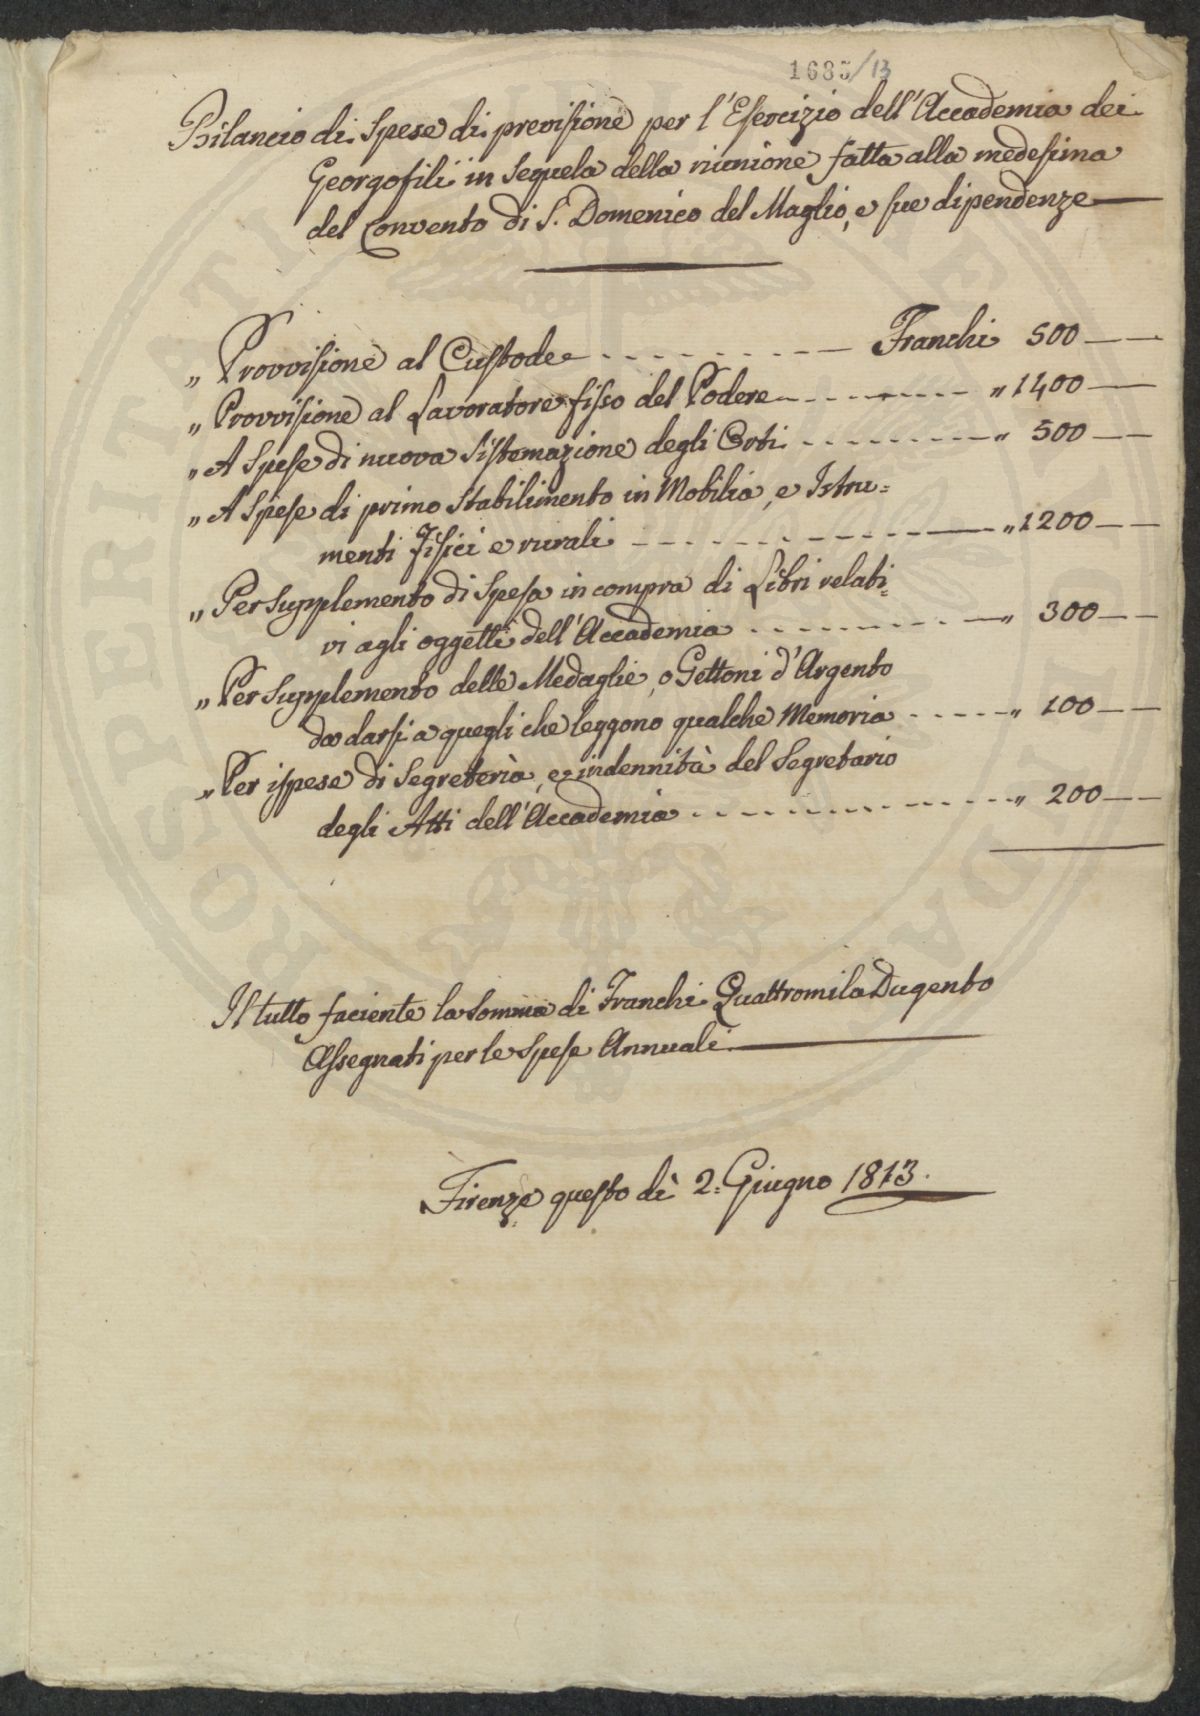 1685/13
Bilancio di Spese di previsione per l'Esercizio dell'Accademia dei
Georgofili in sequela della riunione fatta alla medesima
del Convento di S. Domenico del Maglio, e sue dipendenze
„ Provvisione al Custode - - - - - - - - - Franchi 500
„ Provvisione al Lavoratore fisso del Podere - - - - - - „ 1400
„ A Spese di nuova Sistemazione degli Orti - - - - - - - - „ 500
„ A Spese di primo stabilimento in Mobilia, e Istru=
menti Fisici e rurali - - - - - - - - - - „ 1200
„ Per Supplemento di Spesa in compra di Libri relati=
vi agli oggetti dell'Accademia - - - - - - - - - „ 300
„ Per Supplemento delle Medaglie, o Gettoni d'Argento
da darsi a quegli che leggono qualche Memoria - - - - - „ 100
„ Per ispese di Segreteria, e indennità del Segretario
degli Atti dell'Accademia - - - - - - - - - - - „ 200
Il tutto faciente la Somma di Franchi Quattromila Dugento
Assegnati per le Spese Annuali
Firenze questo dì 2. Giugno 1813.